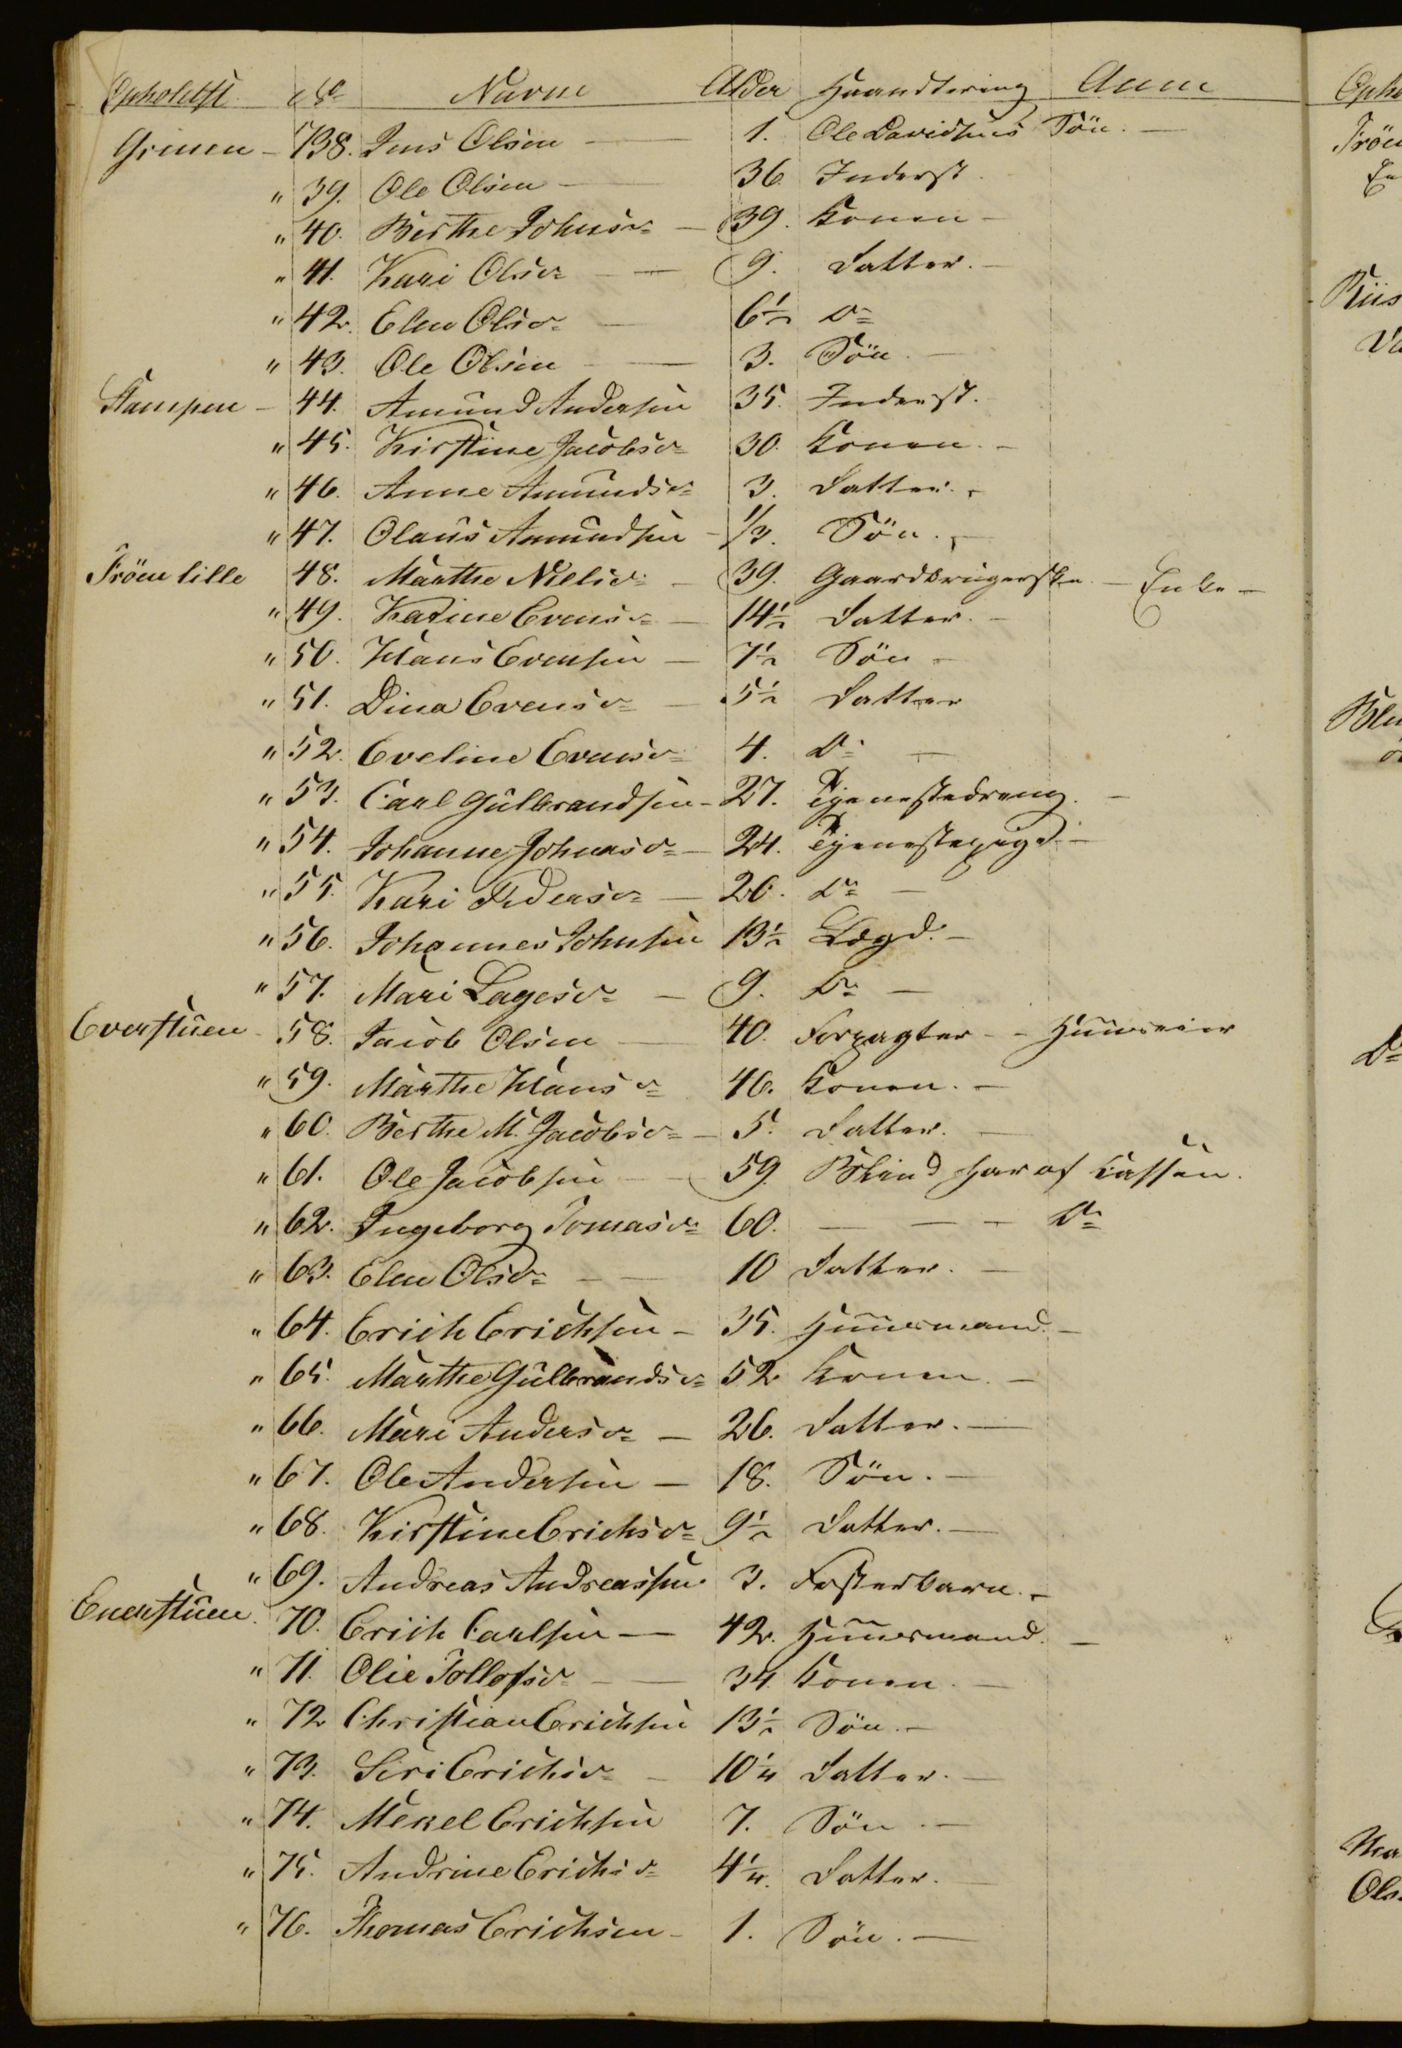 Opholdst. No Navne Alder Haandtering Anm
Grinen - 738. Jens Olsen - 1. Ole Davidsens Sön. -
" 39. Ole Olsen - 36. Inderst.
" 40. Berthe Johnsd. - 39. Konen -
" 41. Kari Olsd. - 9. Datter. -
" 42. Elen Olsd. - 6½ Do
" 43. Ole Olsen - 3. Sön. -
Stampen - 44. Amund Andersen 35. Inderst.
" 45. Kirstine Jacobsd. 30. Konen. -
" 46. Anne Amundsd. 3. Datter. -
" 47. Olaus Amundsen - 1/3. Sön. -
Fröen lille 48. Marthe Nielsd. - 39. Gaardbrugerske. - Enke -
" 49. Karine Evensd. - 14½ Datter. -
" 50. Hans Evensen - 7½ Sön -
" 51. Dina Evensd. - 5½ Datter
" 52. Eveline Evensd. 4. Do -
" 53. Carl Gulbrandsen - 27. Tjenestedreng. -
" 54. Johanne Johnsd. - 24. Tjenestepige. -
" 55. Kari Pedersd. - 20. Do -
" 56. Johannes Johnsen 13½ Lægd. -
" 57. Mari Lagesd. - 9. Do -
Everstuen - 58. Jacob Olsen - 40. Forpagter - - Huuseier
" 59. Marthe Hansd. 46. Konen. -
" 60. Berthe M. Jacobsd. - 5. Datter. -
" 61. Ole Jacobsen - 59. Blind har af Kassen.
" 62. Ingeborg Tomasd. 60. - - - Do
" 63. Elen Olsd. - - 10 Datter. -
" 64. Erich Erichsen - 35. Huusmand. -
" 65. Marthe Gulbrandsd. 52 Konen. -
" 66. Mari Andersd. - 26. Datter. -
" 67. Ole Andersen - 18. Sön. -
" 68. Kirstine Erichsd. 9½ Datter. -
" 69. Andreas Andreassen 3. Fosterbarn. -
Enerstuen. 70. Erich Carlsen - 42. Huusmand. -
" 71. Olie Tollofsd. - 34 Konen. -
" 72 Christian Erichsen 13½ Sön. -
" 73. Siri Erichsd. - 10¼ Datter. -
" 74. Mekel Erichsen 7. Sön. -
" 75. Andrine Erichsd. 4¼. Datter. -
" 76. Thomas Erichsen - 1. Sön. -